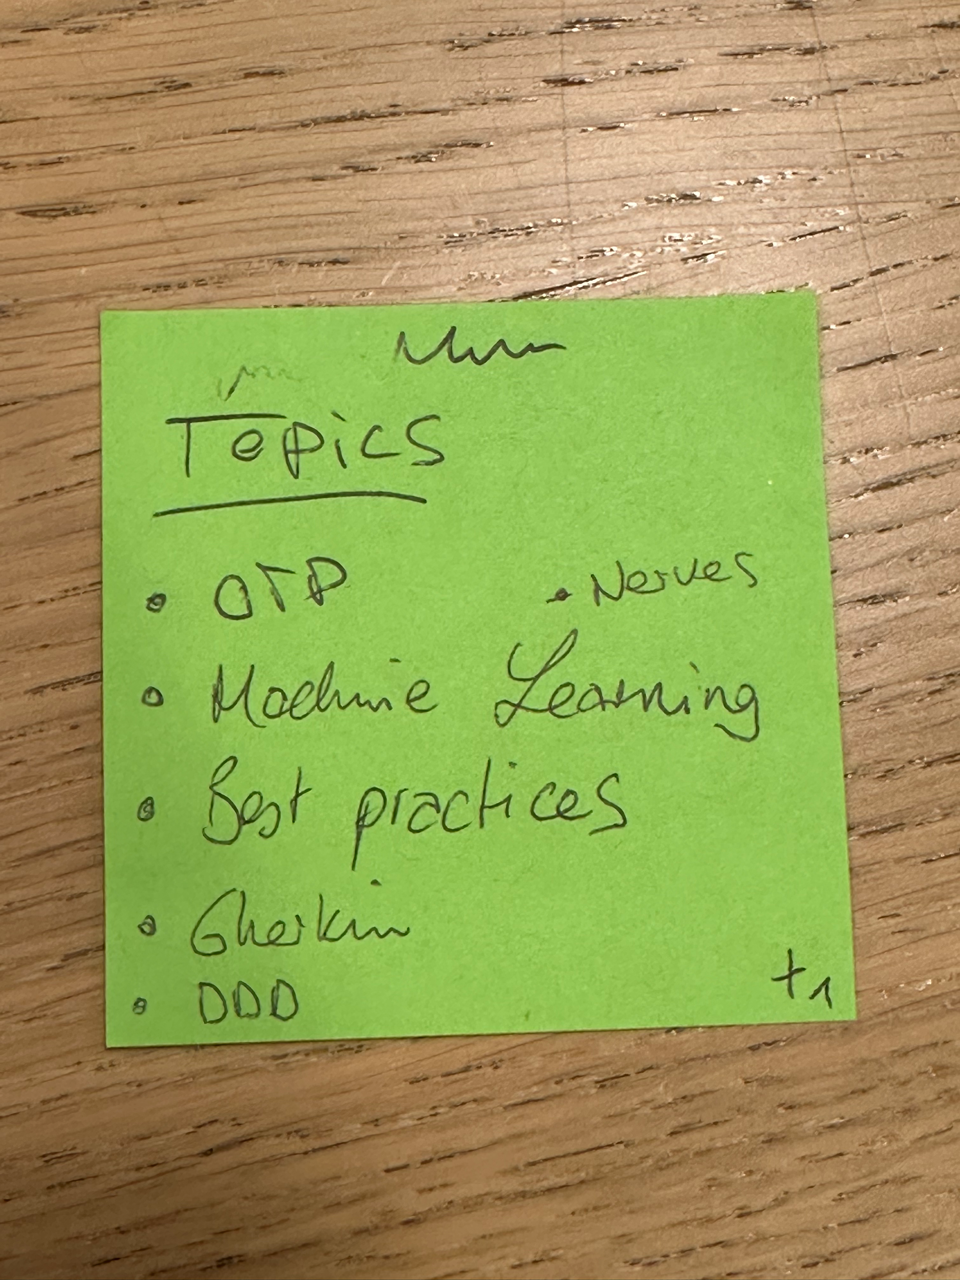 Topics
• OTP
• Nerves
• Machine Learning
• Best practices
• Gherkin
• DDD
+1